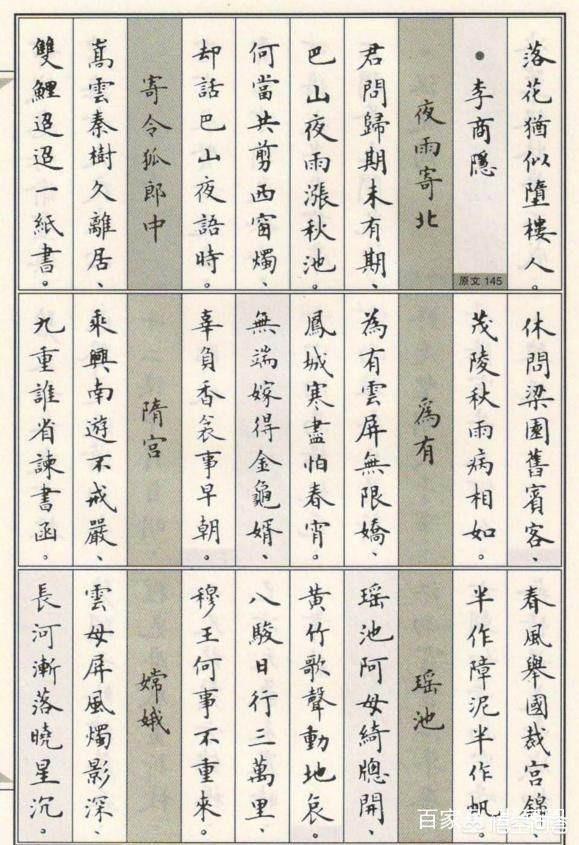 落花猶似墮樓人。
●李商隱
原文 145
夜雨寄北
君問歸期未有期、
巴山夜雨漲秋池。
何當共剪西窗燭、
却話巴山夜語時。
寄令狐郎中
嵩雲秦樹久離居、
雙鯉迢迢一紙書。
休問梁園舊賓客、
茂陵秋雨病相如。
爲有
為有雲屏無限嬌、
鳳城寒盡怕春宵。
無端嫁得金龜婿、
辜負香衾事早朝。
隋宮
乘興南遊不戒嚴、
九重誰省諫書函。
春風舉國裁宮錦、
半作障泥半作帆。
瑶池
瑶池阿母綺牕開、
黃竹歌聲動地哀。
八駿日行三萬里、
穆王何事不重來。
嫦娥
雲母屏風燭影深、
長河漸落曉星沉。
百家